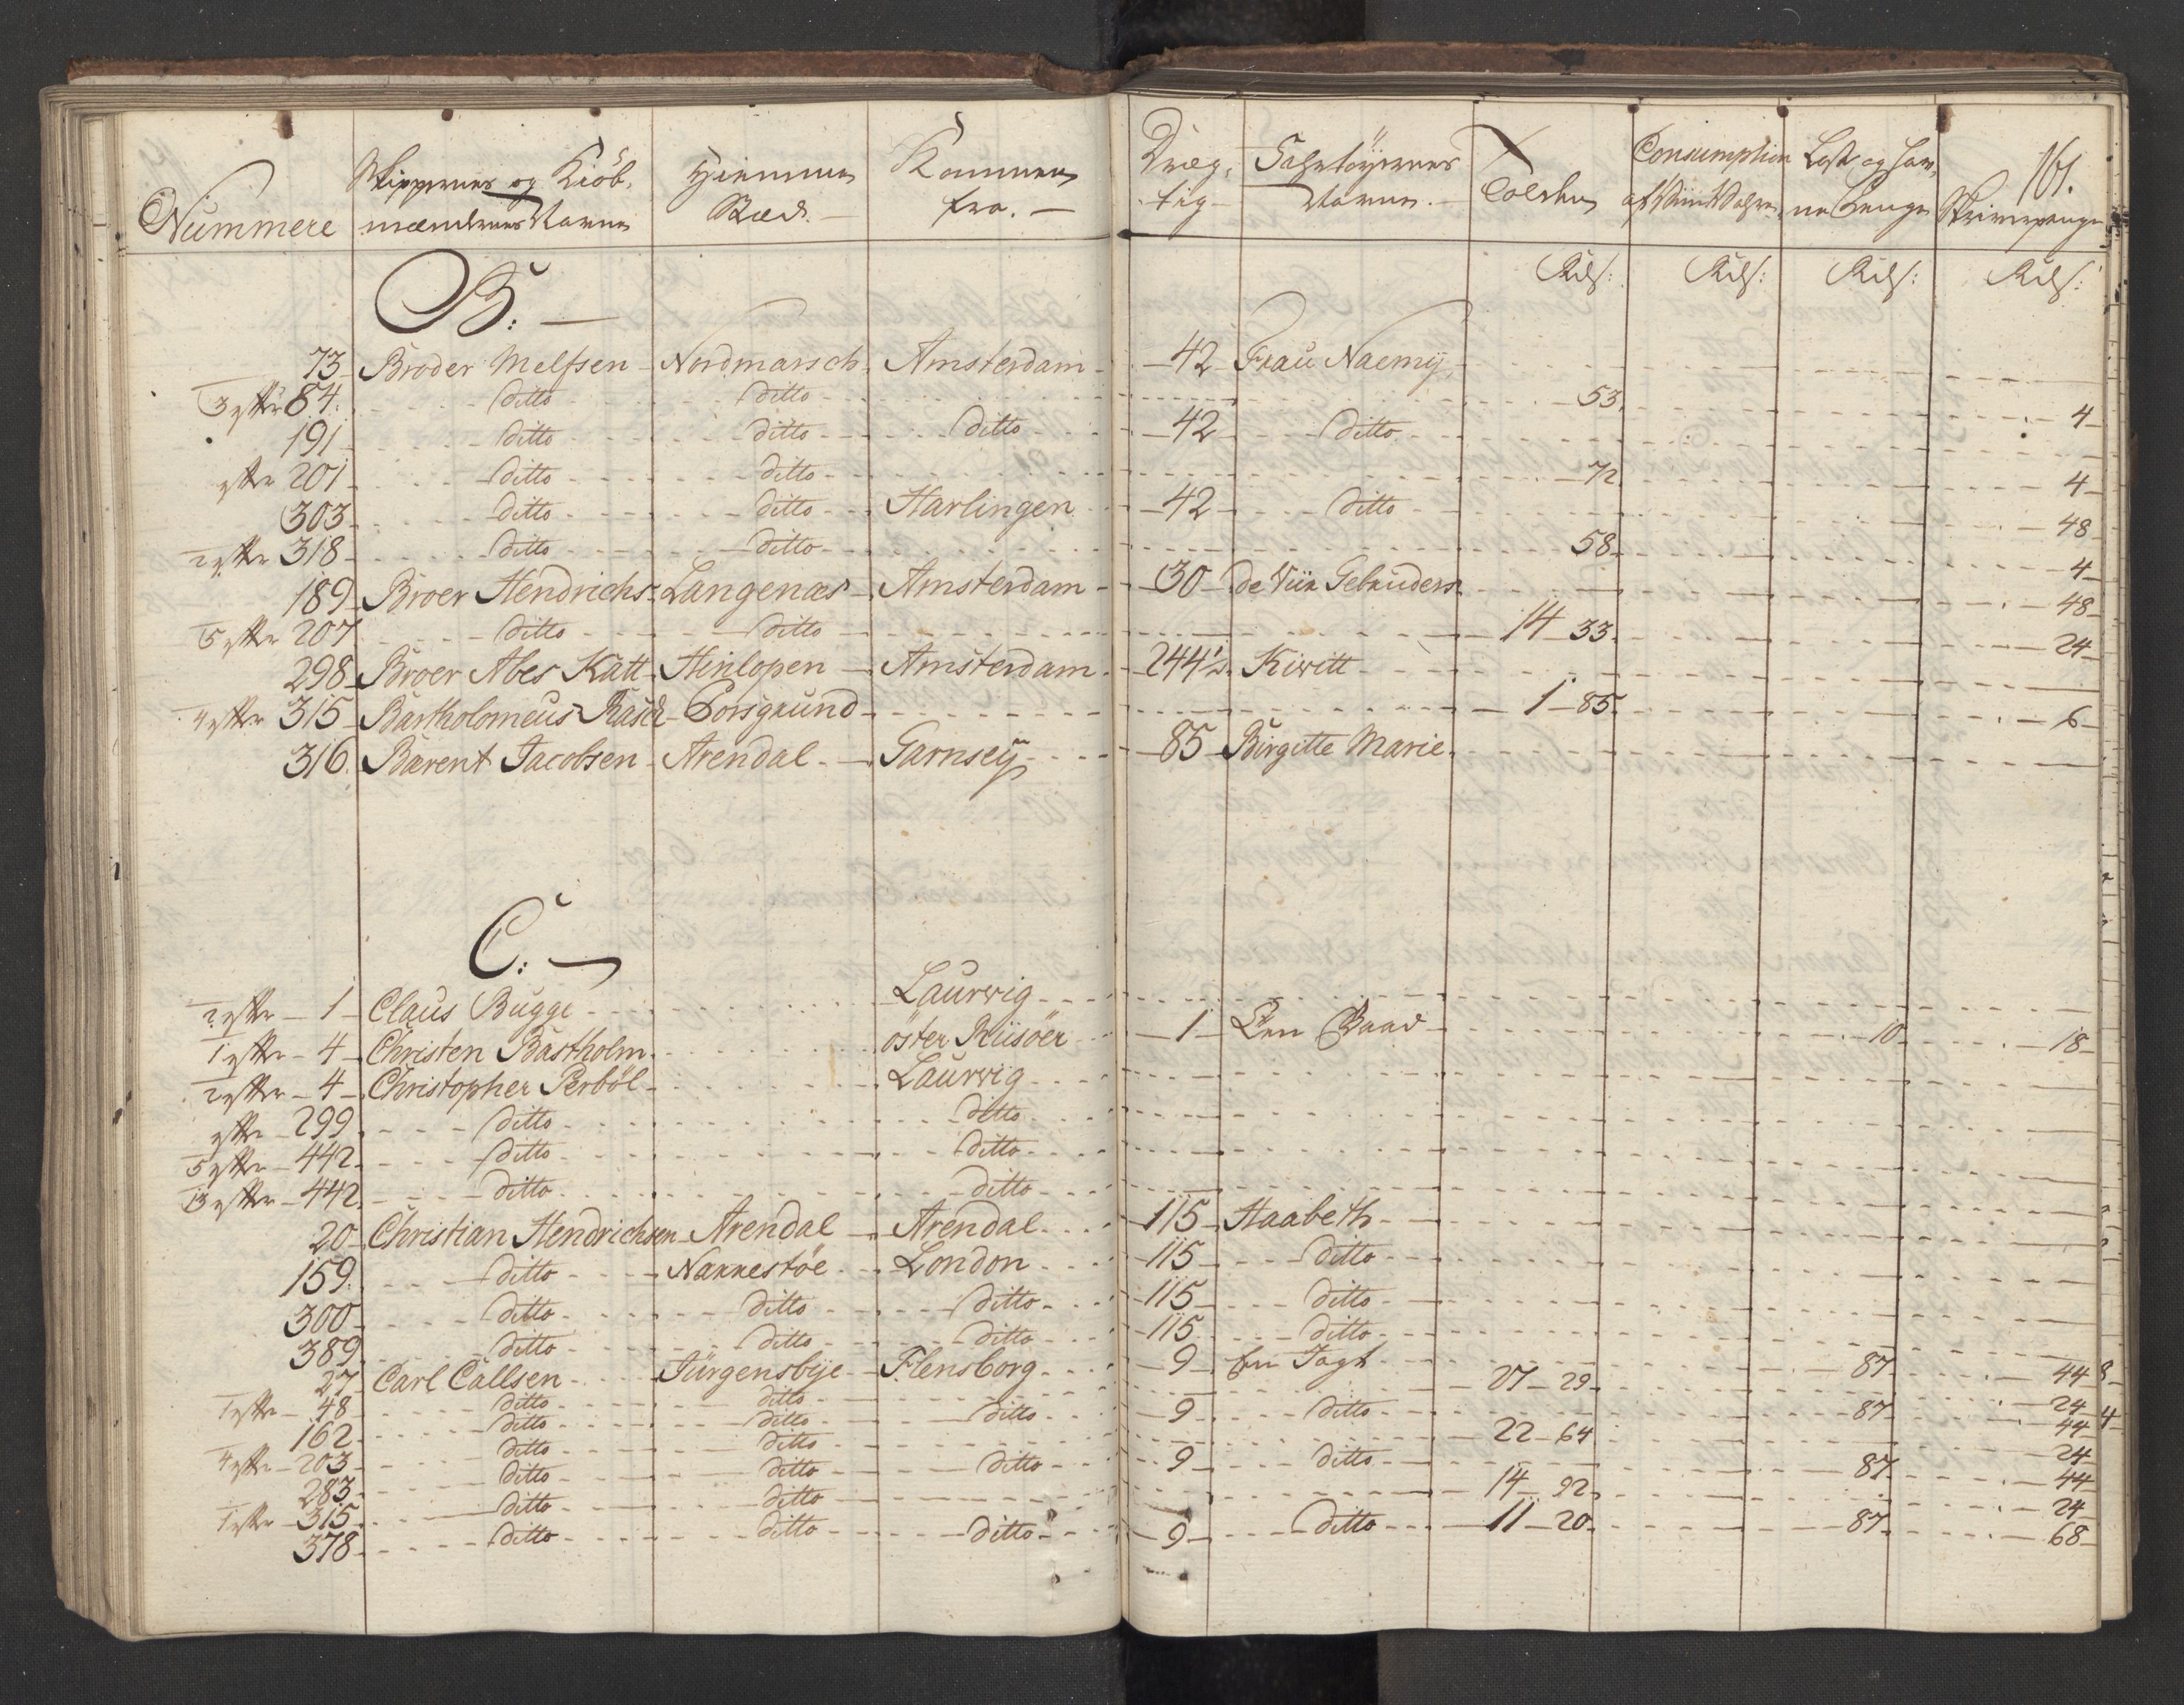 161.
Nummere | Skippernes og Kiöbmændenes Navne | Hiemme Stæd. | Kommen fra. | Dræg,tig | Fahrtöyernes Navne. | Tolden | Consumption af Viin | Last og Havne Penge | Skrivepenge
Rd ſ: | Rd ſ: | Rd ſ: | Rd ſ:
B:
73 Broder Melfsen Nordmarsch Amsterdam 42 Frau Naemÿ
3 efter 84 ditto ditto 53 4
191 ditto ditto ditto 42 ditto
efter 201 ditto ditto 72 4
303 ditto ditto Harlingen 42 ditto 48
2 efter 318 ditto ditto 58 4
189 Broer Hendrichs Langenæs Amsterdam 30 de Viir Gebruders 48
5 efter 207 ditto ditto 14 33 24
298 Broer Abes Katt Hinlopen Amsterdam 244½ Kiwitt
4 efter 315 Bartholomeus Rasch Porsgrund 1 85 6
316 Barent Jacobsen Arendal Garnseÿ 85 Birgitte Marie
C:
2 efter 1 Claus Bugge Laurvig
1 efter 4 Christen Bastholm öster Riisöer 1 Een Baad 10 18
2 efter 4 Christopher Perböl Laurvig
efter 299 ditto ditto
5 efter 442 ditto ditto
13 efter 442 ditto ditto
20 Christian Hendrichsen Arendal Arendal 115 Haabeth
159 ditto Narrestöe London 115 ditto
300 ditto ditto ditto 115 ditto
389 ditto ditto ditto 115 ditto
27 Carl Callsen Jürgensbÿe Flensborg 9 En Jagt 87 44 8
1 efter 48 ditto ditto 27 29 24
162 ditto ditto ditto 9 ditto 87 44 4
4 efter 203 ditto ditto 22 64 24
283 ditto ditto ditto 9 ditto 87 44
1 efter 315 ditto ditto 14 92 24
378 ditto ditto ditto 9 ditto 11 20 87 68